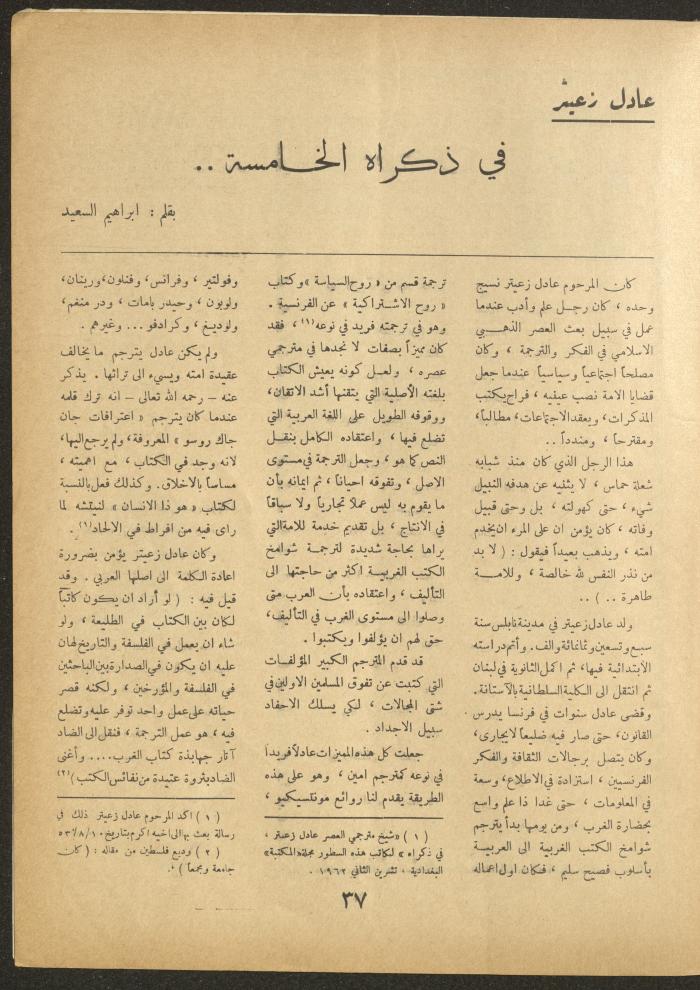 عادل زعيتر
في ذكراه الخامسة ..
بقلم : ابراهيم السعيد
كان المرحوم عادل زعيتر نسيج
وحده ، كان رجل علم وأدب عندما
عمل في سبيل بعث العصر الذهبي
الاسلامي في الفكر والترجمة ، وكان
مصلحاً اجتماعياً وسياسياً عندما جعل
قضايا الامة نصب عينيه ، فراح يكتب
المذكرات، ويعقد الاجتماعات، مطالباً،
ومقترحاً ، ومندداً ..
هذا الرجل الذي كان منذ شبابه
شعلة حماس ، لا يثنيه عن هدفه النبيل
شيء ، حتى كهولته ، بل وحتى قبيل
وفاته ، كان يؤمن ان على المرء ان يخدم
امته ، ويذهب بعيداً فيقول : ( لا بد
من نذر النفس لله خالصة ، وللامة
طاهرة .. ) ..
ولد عادل زعيتر في مدينة نابلس سنة
سبع وتسعين وثمانمائة والف. وأتم دراسته
الابتدائية فيها، ثم اكمل الثانوية في لبنان
ثم انتقل الى الكلية السلطانية بالآستانة.
وقضى عادل سنوات في فرنسا يدرس
القانون، حتى صار فيه ضليعاً لا يجارى،
وكان يتصل برجالات الثقافة والفكر
الفرنسيين ، استزادة في الاطلاع، وسعة
في المعلومات ، حتى غدا ذا علم واسع
بحضارة الغرب ، ومن يومها بدأ يترجم
شوامخ الكتب الغربية الى العربية
بأسلوب فصيح سليم ، فكان اول اعماله
ترجمة قسم من « روح السياسة » وكتاب
« روح الاشتراكية » عن الفرنسية .
وهو في ترجمته فريد في نوعه (١) ، فقد
كان مميزاً بصفات لا نجدها في مترجمي
عصره ، ولعل كونه يعيش الكتاب
بلغته الأصلية التي يتقنها أشد الاتقان،
ووقوفه الطويل على اللغة العربية التي
تضلع فيها ، واعتقاده الكامل بنقل
النص كما هو ، وجعل الترجمة في مستوى
الاصل ، وتفوقه احياناً ، ثم ايمانه بأن
ما يقوم به ليس عملاً تجارياً ولا سباقاً
في الانتاج ، بل تقديم خدمة للامة التي
يراها بحاجة شديدة لترجمة شوامخ
الكتب الغربية اكثر من حاجتها الى
التأليف ، واعتقاده بأن العرب متى
وصلوا الى مستوى الغرب في التأليف،
حق لهم ان يؤلفوا ويكتبوا .
قد قدم المترجم الكبير المؤلفات
التي كتبت عن تفوق المسلمين الاولين في
شتى المجالات ، لكي يسلك الاحفاد
سبيل الاجداد .
جعلت كل هذه المميزات عادلاً فريداً
في نوعه كمترجم امين ، وهو على هذه
الطريقة يقدم لنا روائع مونتسيكيو ،
( ١ ) « شيخ مترجمي العصر عادل زعيتر ،
في ذكراه » لكاتب هذه السطور مجلة « المكتبة »
البغدادية ، تشرين الثاني ١٩٦٢ .
وفولتير ، وفرانس، وفنلون، ورينان،
ولوبون ، وحيدر بامات ، ودرمنغم،
ولودينغ ، وكرادفو ... وغيرهم .
ولم يكن عادل يترجم ما يخالف
عقيدة امته ويسيء الى تراثها . يذكر
عنه – رحمه الله تعالى – انه ترك قلمه
عندما كان يترجم « اعترافات جان
جاك روسو » المعروفة، ولم يرجع اليها،
لانه وجد في الكتاب ، مع اهميته ،
مساساً بالاخلاق. وكذلك فعل بالنسبة
لكتاب « هو ذا الانسان » لنيتشه لما
رأى فيه من افراط في الالحاد (١) .
وكان عادل زعيتر يؤمن بضرورة
اعادة الكلمة الى اصلها العربي . وقد
قيل فيه : ( لو أراد ان يكون كاتباً
لكان بين الكتاب في الطليعة ، ولو
شاء ان يعمل في الفلسفة والتاريخ لهان
عليه ان يكون في الصدارة بين الباحثين
في الفلسفة والمؤرخين ، ولكنه قصر
حياته على عمل واحد توفر عليه وتضلع
فيه ، هو عمل الترجمة ، فنقل الى الضاد
آثار جهابذة كتاب الغرب.... وأغنى
الضاد بثروة عتيدة من نفائس الكتب) (٢)
( ١ ) اكد المرحوم عادل زعيتر ذلك في
رسالة بعث بها الى اخيه اكرم بتاريخ ٥٣/٨/١٠
( ٢ ) وديع فلسطين من مقاله : ( كان
جامعة ومجمعاً ) .
٣٧